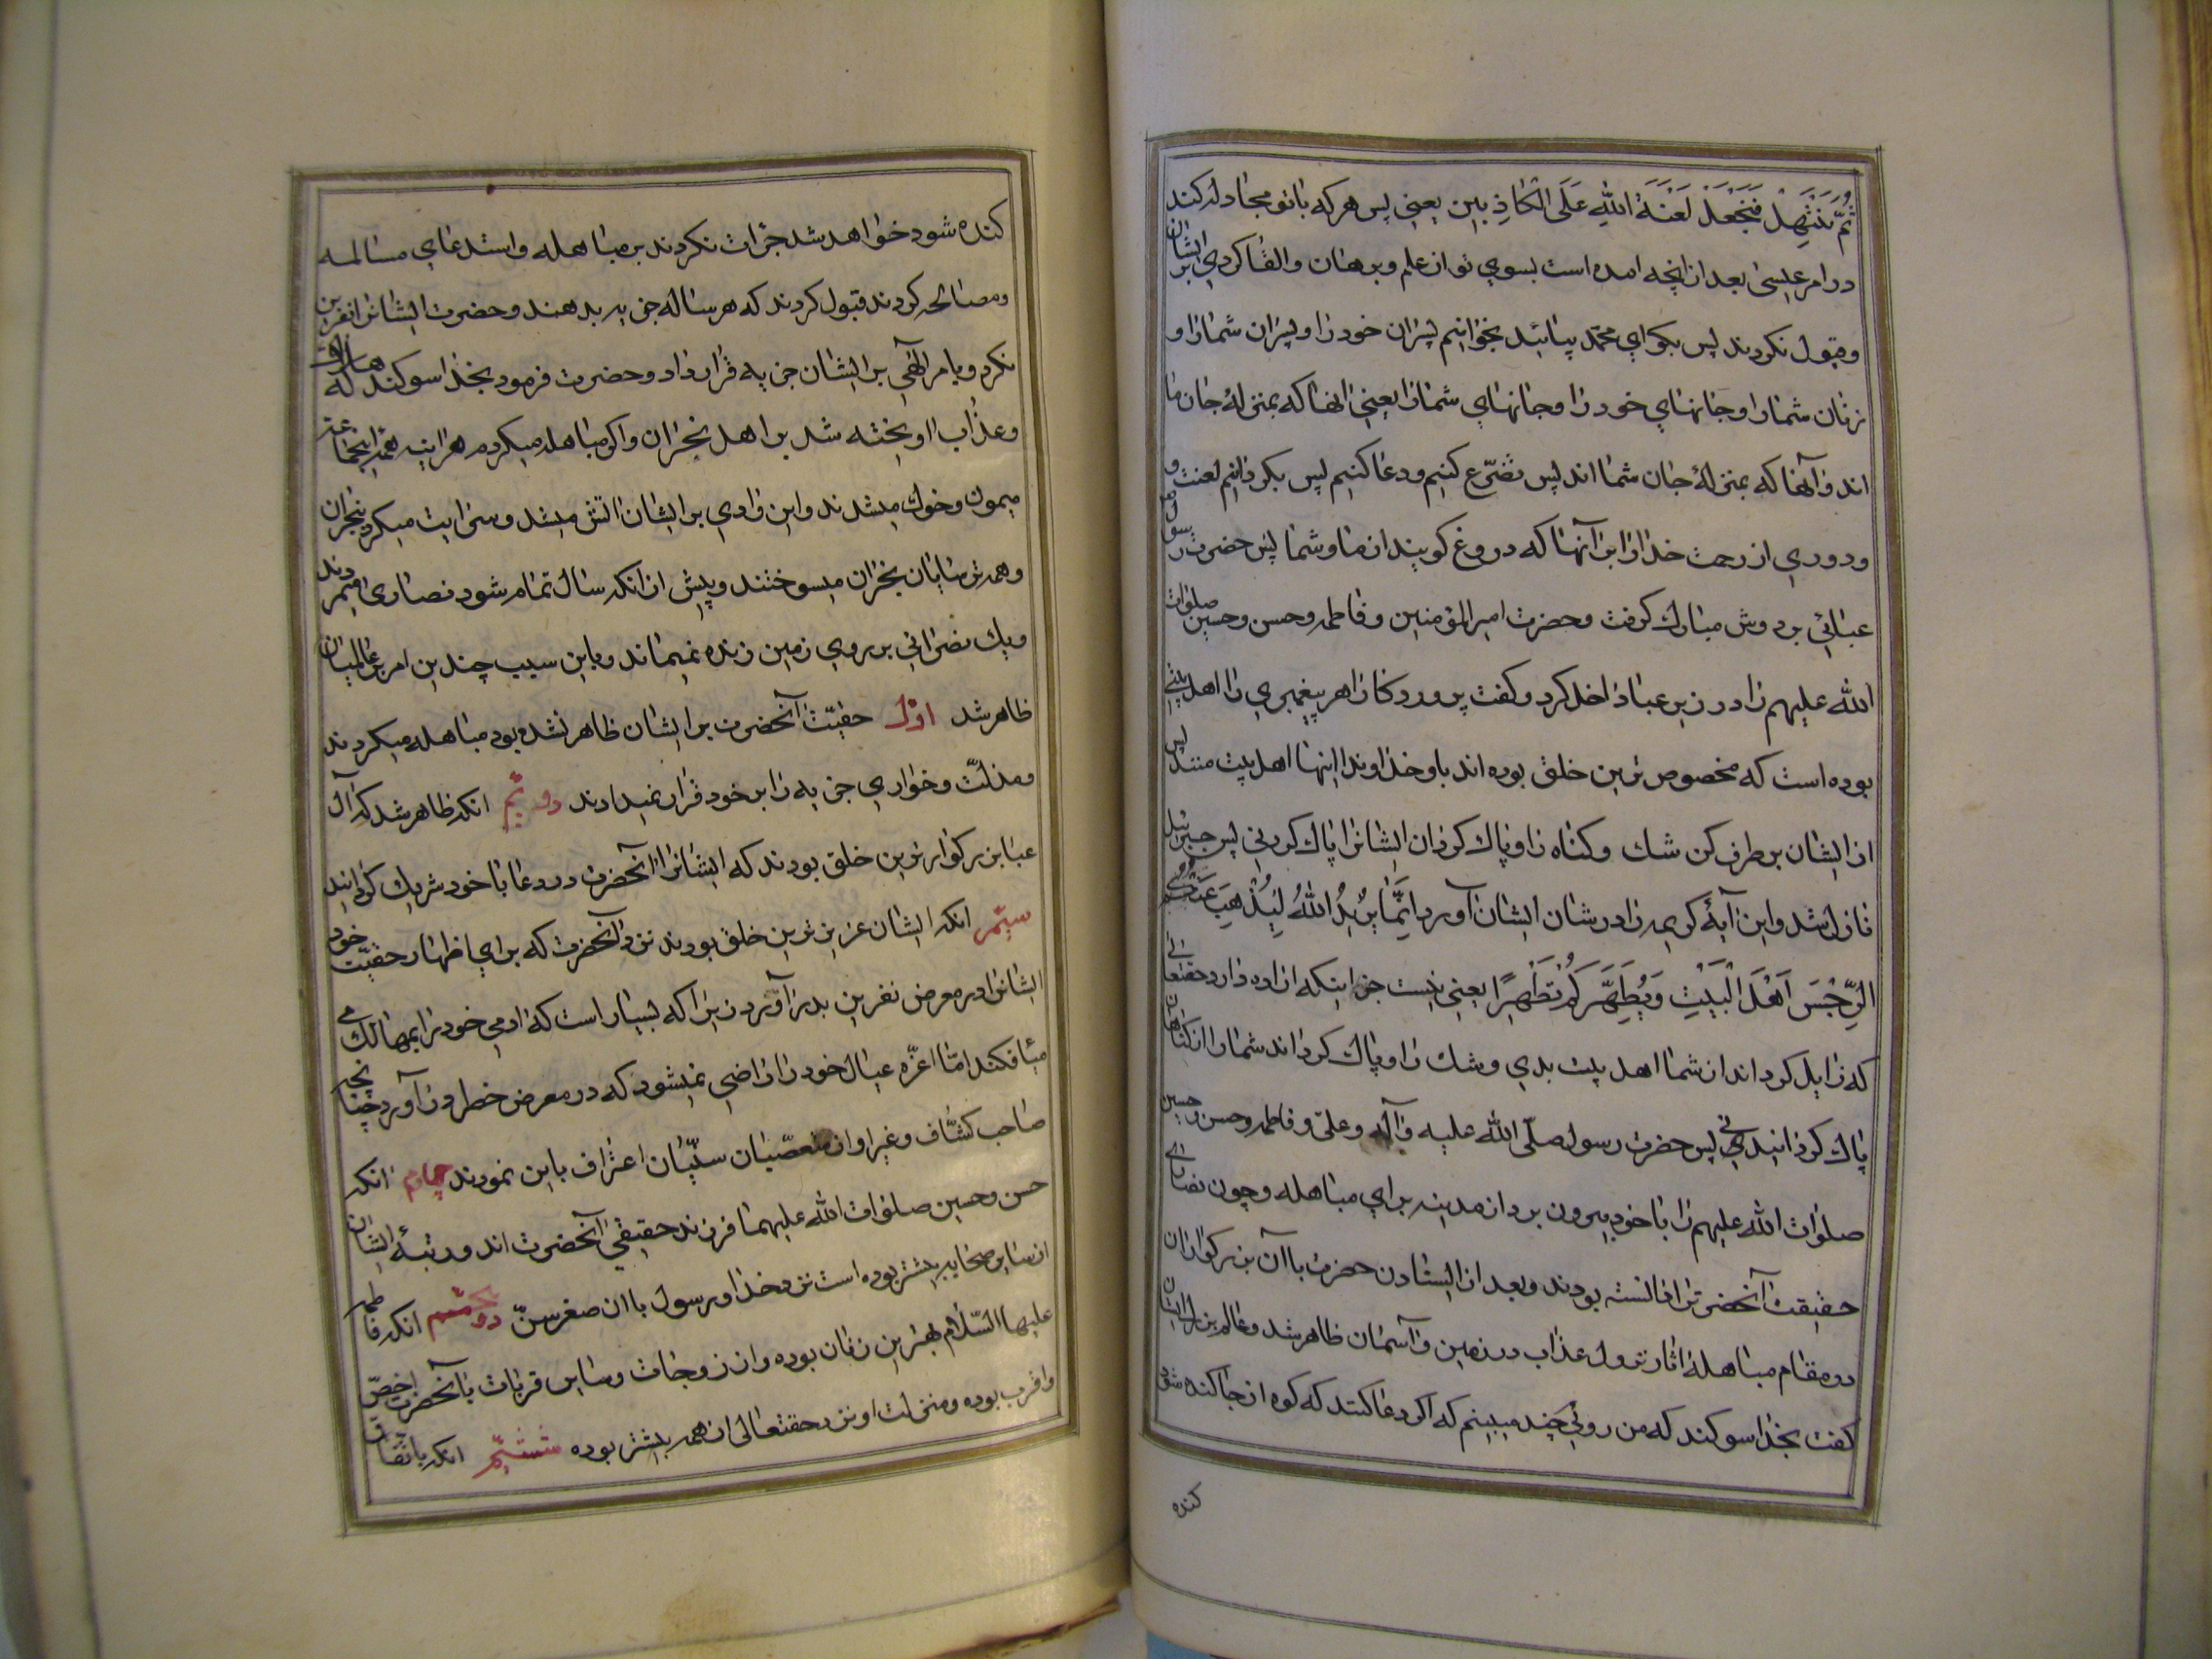 ثُمَّ نَبْتَهِلْ فَنَجْعَلْ لَعْنَةَ اللّٰهِ عَلَى الْكاذِبِينَ يعني پس هركه باتو مجادله كند
در امر عيسى بعد از انچه امده است بسوي تو از علم و برهان والقا كردي بر ايشان
و قبول نكردند پس بكو اي محمد بيائيد بخوانيم پسران خود را و پسران شما را و
زنان شما را و جانهاي خود را و جانهاي شما را يعني انها كه بمنزلهٔ جان ما
اند و آنها كه بمنزلهٔ جان شما اند پس تضرّع كنيم و دعا كنيم پس بكردانيم لعنت و
و دوري از رحمت خدا را بر آنها كه دروغ كويند از ما و شما پس حضرت رسول
عبائي بر دوش مبارك كرفت و حضرت امير المؤمنين و فاطمه و حسن و حسين صلوات
اللّه عليهم را در زير عبا داخل كرد و كفت پروردكارا هر پيغمبري را اهل بيتي
بوده است كه مخصوص ترين خلق بوده اند باو خداوندا اينها اهل بيت منند پس
از ايشان برطرف كن شك و كناه را و پاك كردان ايشانرا پاك كردني پس جبرئيل
نازل شد و اين آيهٔ كريمه را در شان ايشان آورد اِنَّمٰا يُرِيْدُ اللّٰهُ لِيُذْهِبَ عَنْكُمُ
الرِّجْسَ اَهْلَ الْبَيْتِ وَيُطَهِّرَكُمْ تَطْهِيرًا يعني نيست جز اينكه اراده دارد حقتعالى
كه زايل كرداند از شما اهل بيت بدي و شك را و پاك كرداند شما را از كناهان
پاك كردانيدني پس حضرت رسول صلّى اللّه عليه وآله و علىّ و فاطمه و حسن و حسين
صلوات اللّه عليهم را با خود بيرون برد از مدينه براي مباهله و چون نصاراى
حقيقت آنحضرترا دانسته بودند و بعد از ايستادن حضرت با آن بزركواران
در مقام مباهله اثار نزول عذاب در زمين و آسمان ظاهر شد و عالم بزرك ايشان
كفت بخدا سوكند كه من روئي چند ميبينم كه اكر دعا كنند كه كوه از جا كنده شود
كنده
كنده شود خواهد شد جرات نكردند بر مباهله و استدعاي مسالمه
و مصالحه كردند قبول كردند كه هر ساله جزيه بدهند و حضرت ايشانرا نفرين
نكرد و بامر الٓهي بر ايشان جزيه قرار داد و حضرت فرمود بخدا سوكند كه هلاك
و عذاب اويخته شد بر اهل نجران و اكر مباهله ميكردم هر اينه همه
ميمون و خوك ميشدند و اين وادي بر ايشان اتش ميشد و سرايت ميكرد بنجران
و همه ترسايان نجران ميسوختند و پيش از انكه سال تمام شود نصارى ميمردند
و يك نصراني بر روي زمين زنده نميماند و باين سبب چندين امر بر عالميان
ظاهر شد اوّل حقيّت آنحضرت بر ايشان ظاهر نشده بود مباهله ميكردند
و مذلّت و خواري جزيه را بر خود قرار نميدادند دويّم انكه ظاهر شد كه آل
عبا بزركوارترين خلق بودند كه ايشانرا آنحضرت در دعا با خود شريك كردانيد
سيّم انكه ايشان عزيزترين خلق بودند نزد آنحضرت كه براي اظهار حقيّت خود
ايشانرا در معرض نفرين بدر آورد زيرا كه بسيار است كه ادمي خود را بمهالك مي
ميافكند امّا اعزّه عيال خود را راضي نميشود كه در معرض خطر در آورد چنانچه
صاحب كشّاف و غير او از متعصّبان سنّيان اعتراف باين نمودند چهارم انكه
حسن و حسين صلوات اللّه عليهما فرزند حقيقي آنحضرت اند و رتبهٔ ايشان
از ساير صحابه بيشتر بوده است نزد خدا و رسول با ان صغر سنّ انكه فاطمه
عليها السّلام بهترين زنان بوده و از زوجات و ساير قربات بآنحضرت اخصّ
و اقرب بوده و منزلت او نزد حقتعالى از همه بيشتر بوده ششم انكه باتّفاق